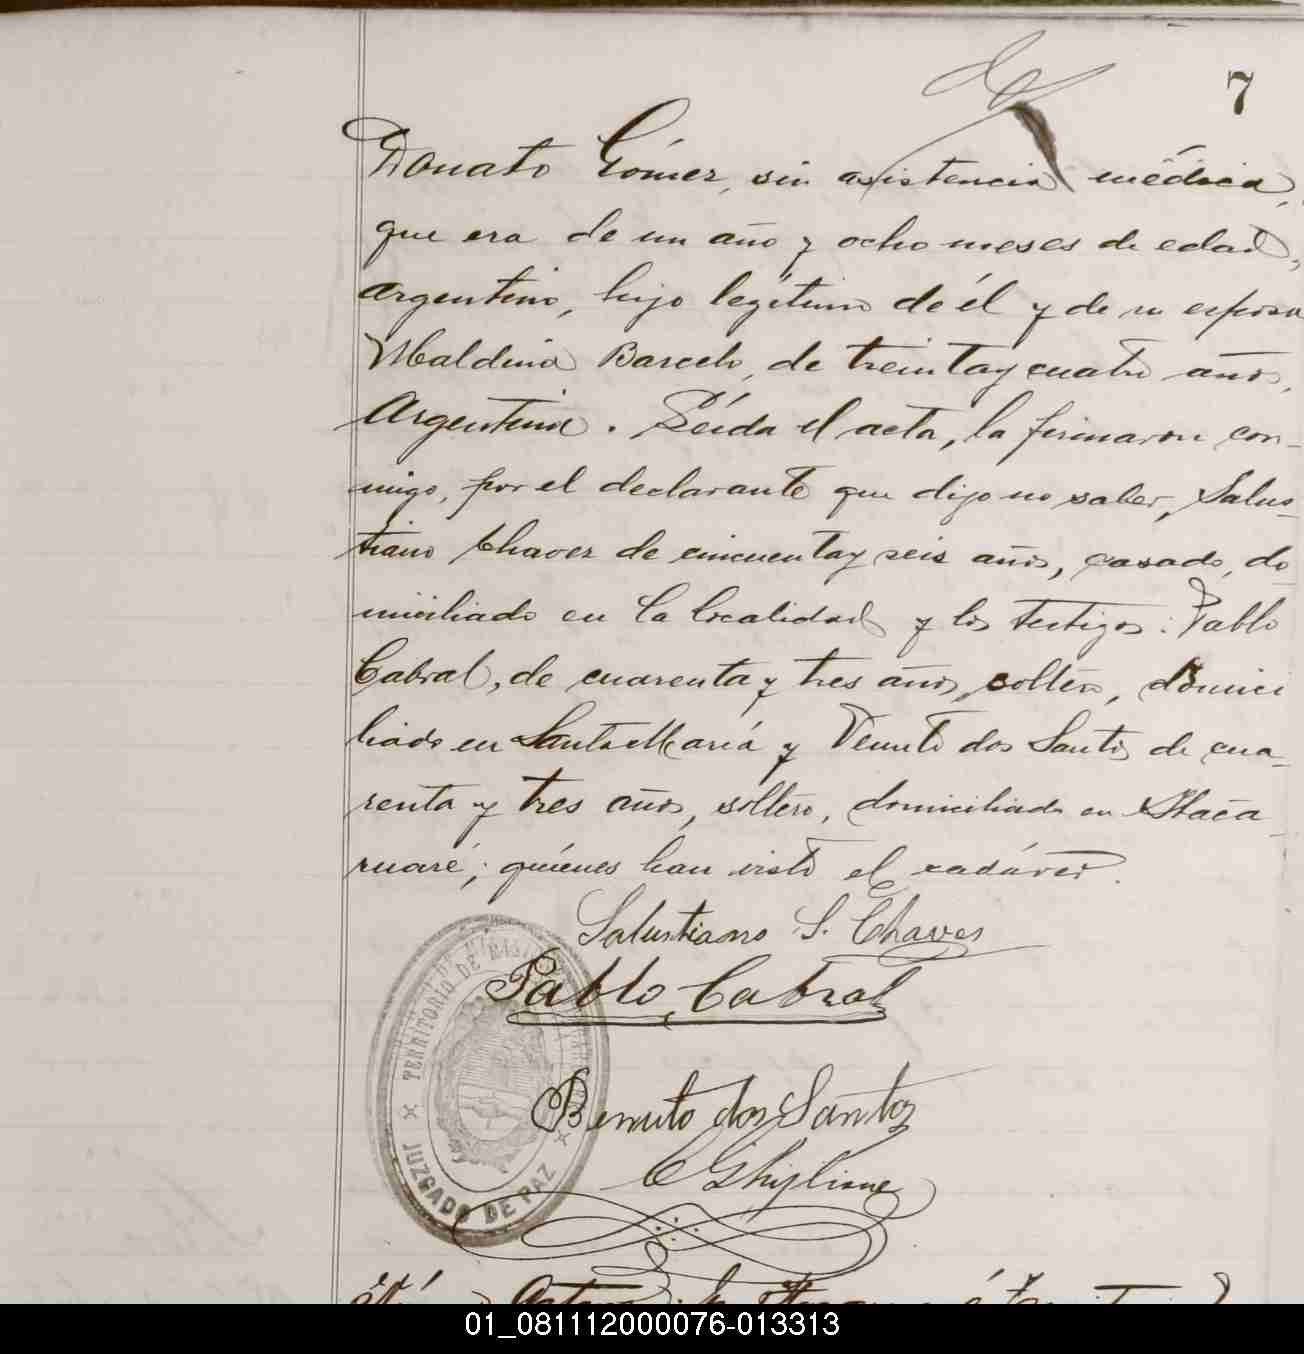 7
Donato Gómez, sin asistencia médica,
que era de un año y ocho meses de edad,
Argentino, hijo legítimo de él y de su esposa
Maldina Barcelo, de treinta y cuatro años,
Argentina. Leída el acta, la firmaron con-
migo, por el declarante que dijo no saber, Salus-
tiano Chavez de cincuenta y seis años, casado, do-
miciliado en la localidad y los testigos: Pablo
Cabral, de cuarenta y tres años, soltero, domici
liado en Santa María y Venuto dos Santos de cua-
renta y tres años, soltero, domiciliado en Itaca-
ruaré; quiénes han visto el cadáver.
Salustiano S. Chaves
Pablo Cabral
Benuto dos Santos
C Ghiglione
TERRITORIO DE MISIONES
JUZGADO DE PAZ
01_081112000076-013313